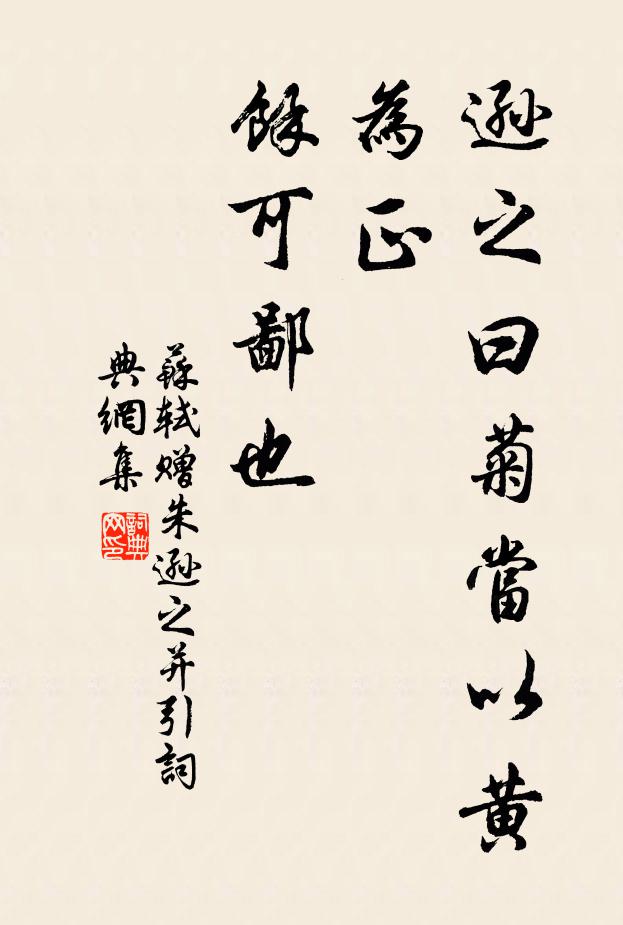 遜之曰菊當以黃
為正
餘可鄙也
蘇軾贈朱遜之并引詞
典網集
詞典
网印